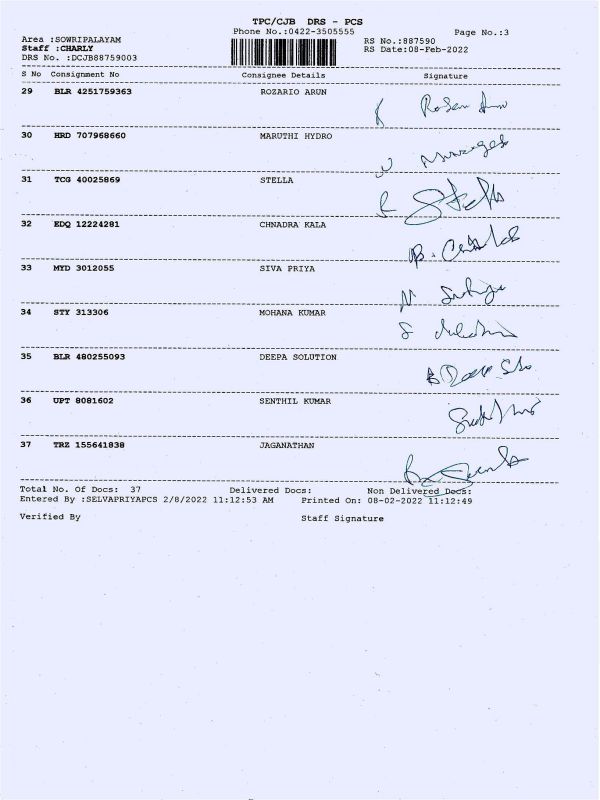 TPC/CJB DRS - PCS
Phone No.:0422-3505555 Page No.:3
Area :SOWRIPALAYAM RS No.:887590
Staff :CHARLY RS Date:08-Feb-2022
DRS No. :DCJB88759003
S No Consignment No Consignee Details Signature
29 BLR 4251759363 ROZARIO ARUN
30 HRD 707968660 MARUTHI HYDRO
31 TCG 40025869 STELLA Stella
32 EDQ 12224281 CHNADRA KALA
33 MYD 3012055 SIVA PRIYA
34 STY 313306 MOHANA KUMAR
35 BLR 480255093 DEEPA SOLUTION
36 UPT 8081602 SENTHIL KUMAR
37 TRZ 155641838 JAGANATHAN
Total No. Of Docs: 37 Delivered Docs: Non Delivered Docs:
Entered By :SELVAPRIYAPCS 2/8/2022 11:12:53 AM Printed On: 08-02-2022 11:12:49
Verified By Staff Signature